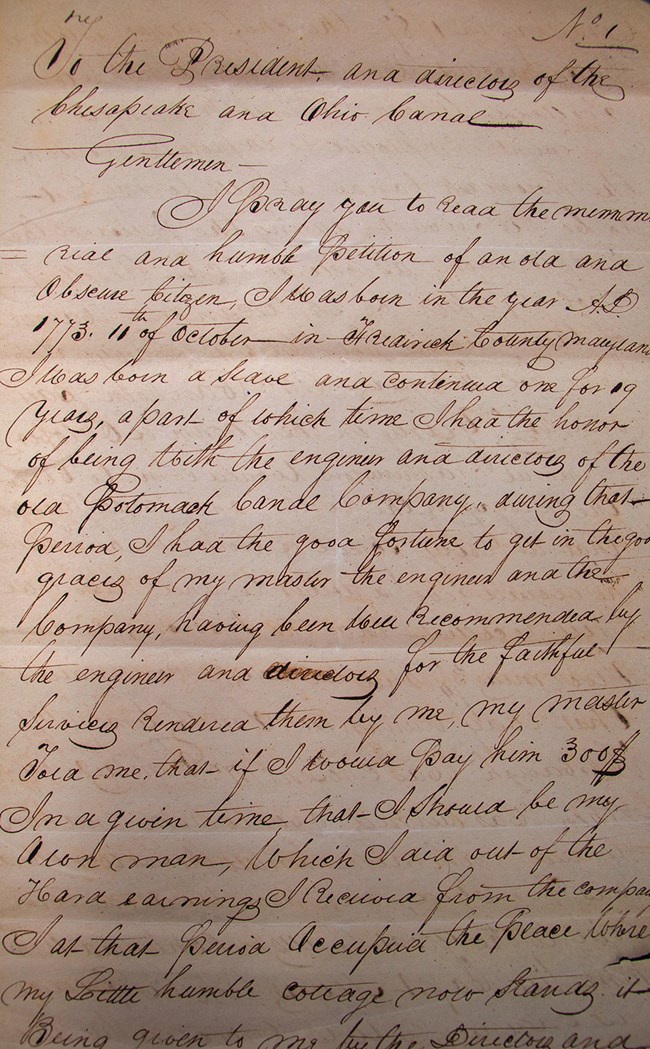 No 1
To the President, and directors of the
Chesapeake and Ohio Canal
Gentlemen
I Pray you to read the memmo
= rial and humble Petition of an old and
Obscure Citizen, I Was born in the year A.D
1773. 11th of October in Fredirick County Maryland
I Was born a slave and continued one for 19
years, a part of which time I had the honor
of being With the engineer and directors of the
old Potomack Canal Company, during that
Period, I had the good fortune to get in the good
graces of my master the engineer and the
Company, having been Well Recommended by
the engineer and directors for the faithful
Services Rendered them by me, my master
Told me, that if I would Pay him 300$
In a given time that I Should be my
Own man, Which I did out of the
Hard earnings I Received from the compan
I at that Period Occupied the Place Where
my Little humble cottage now Stands it
Being given to me by the Directors and